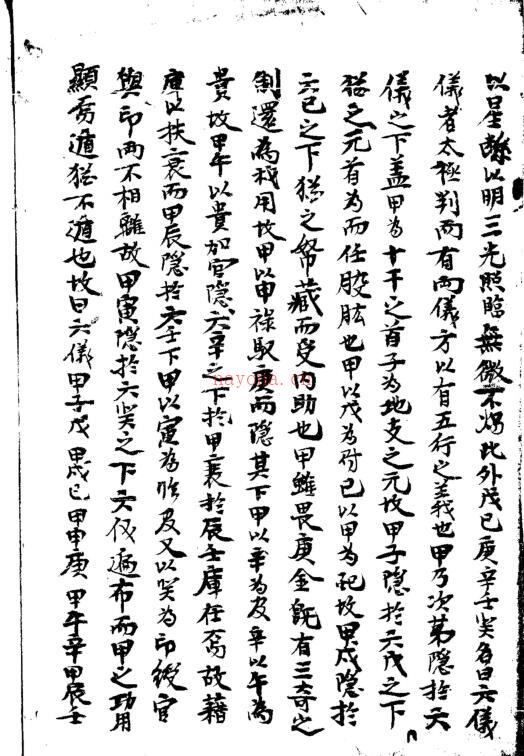 以星
以明三光照臨無微不燭此外戊己庚辛壬癸名曰六儀
儀者太極判而有兩儀方以有五行之義也甲乃次第隐於六
儀之下蓋甲為十干之首子為地支之元故甲子隐於六戊之下
猶之元首為而任股肱也甲以戊為財己以甲為配故甲戌隐於
六己之下猶之帑藏而受内助也甲雖畏庚金既有三奇之
制還為我用故甲以申祿馭庚而隐其下甲以辛為官辛以午為
貴故甲午以貴加官隐六辛之下於甲衰於辰壬庫在焉故藉
庫以扶衰而甲辰隐於六壬下甲以寅為又以癸為印綬官
與印兩不相離故甲寅隐於六癸之下六仪遍布而甲之功用
顯焉遁猶不遁也故曰六儀甲子戊甲戌己甲申庚甲午辛甲辰壬
nayona.cn